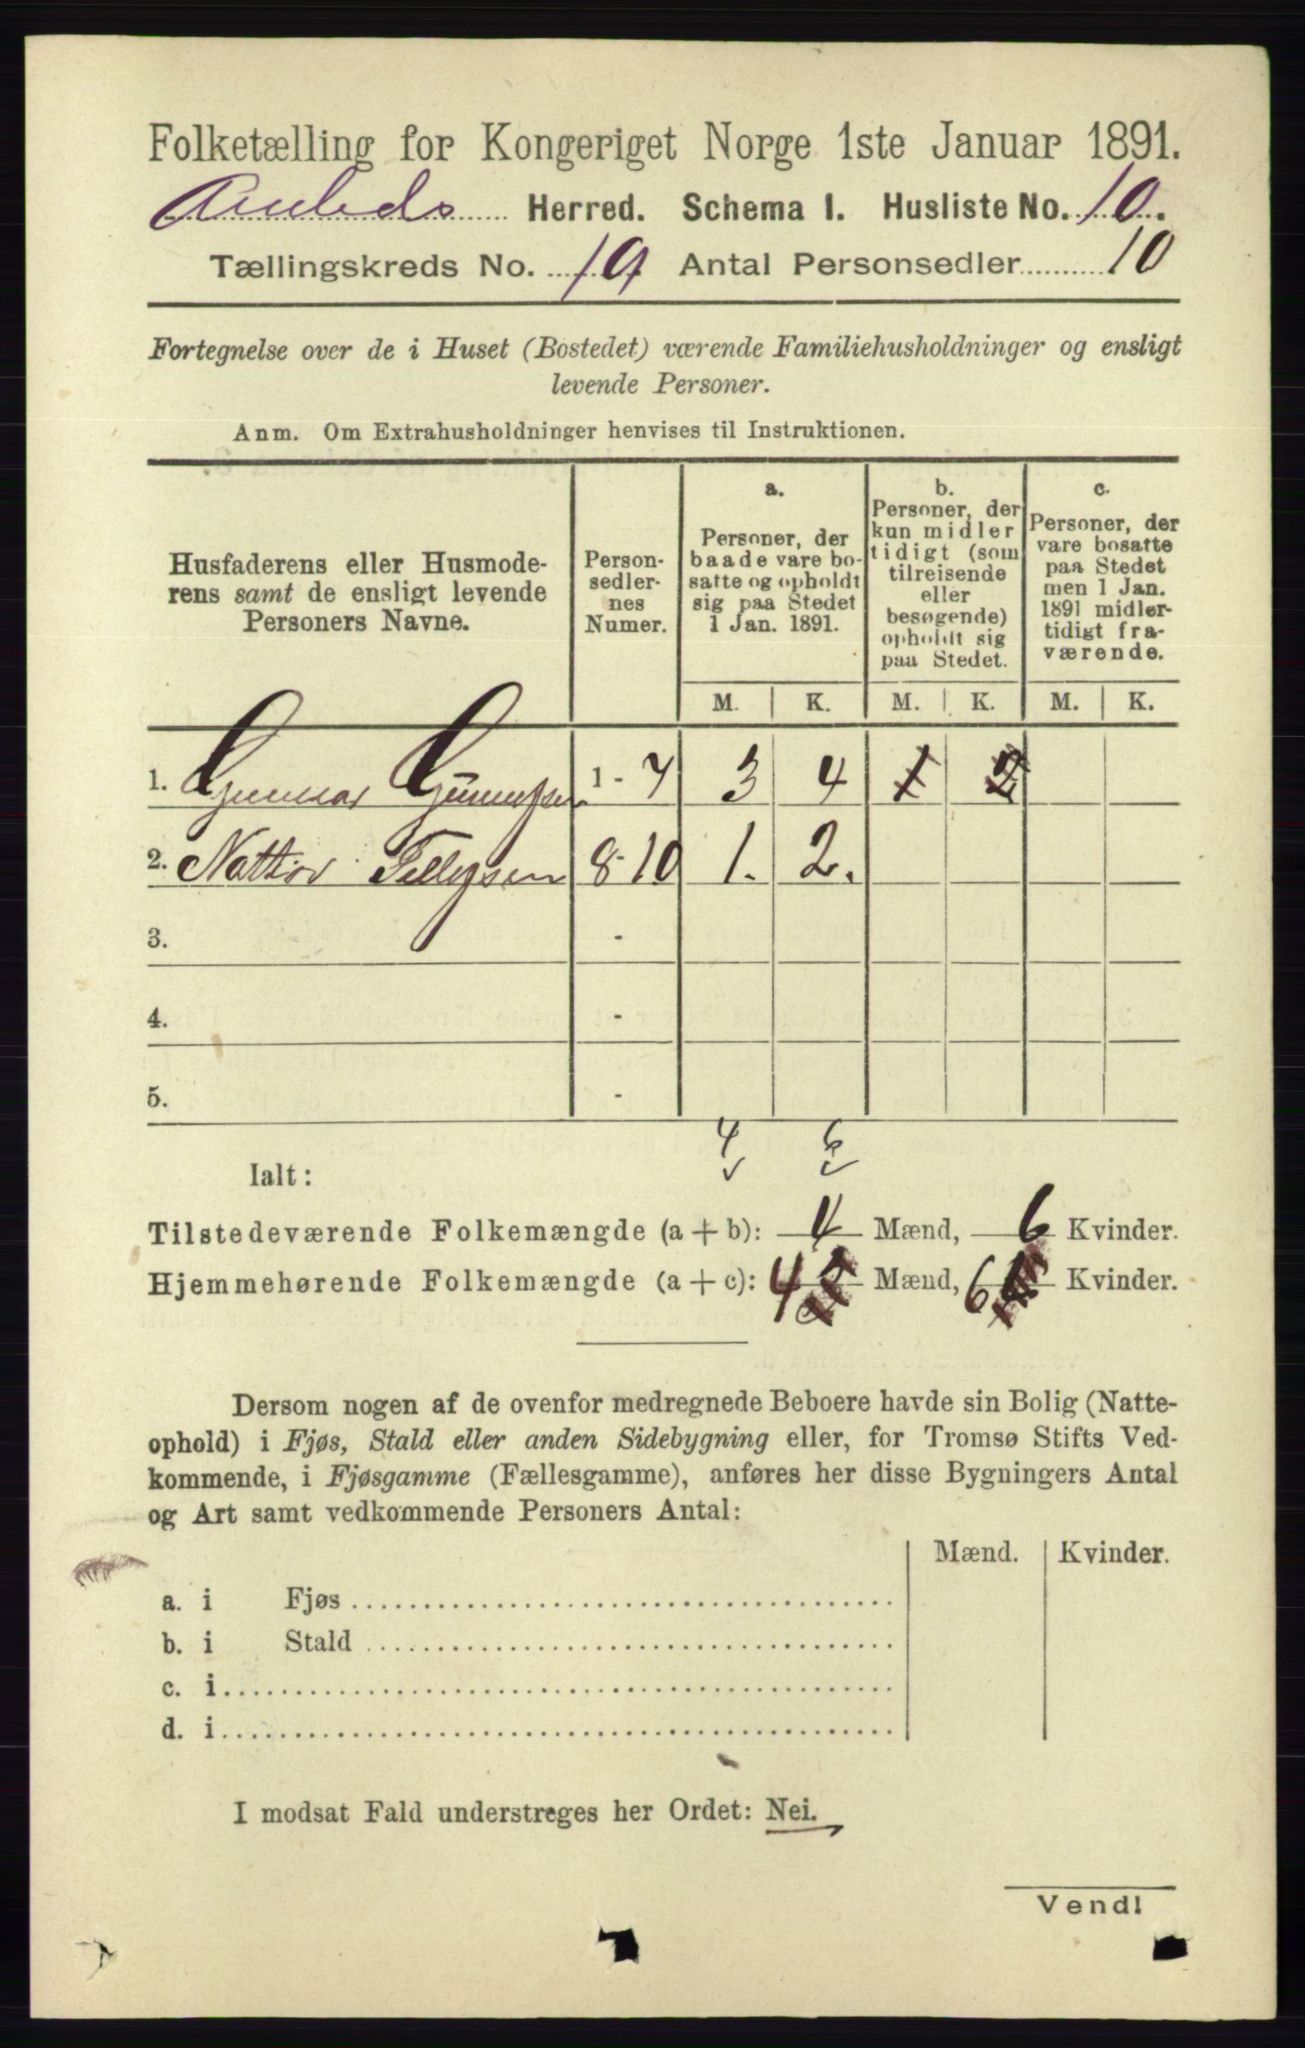 Folketælling for Kongeriget Norge 1ste Januar 1891.
Herred. Schema I. Husliste No. 10.
Tællingskreds No. 19 Antal Personsedler 10
Fortegnelse over de i Huset (Bostedet) værende Familiehusholdninger og ensligt
levende Personer.
Anm. Om Extrahusholdninger henvises til Instruktionen.
Husfaderens eller Husmode-
rens samt de ensligt levende
Personers Navne.
Person-
sedler-
nes
Numer.
a.
Personer, der
baade vare bo-
satte og opholdt
sig paa Stedet
1 Jan. 1891.
b.
Personer, der
kun midler
tidigt (som
tilreisende
eller
besøgende)
opholdt sig
paa Stedet.
c.
Personer, der
vare bosatte
paa Stedet
men 1 Jan.
1891 midler-
tidigt fra-
værende.
M. K. M. K. M. K.
1. Gunnar 1 - 7 3 4 1 2
2. 8 - 10 1. 2.
3. -
4. -
5. -
4 6
Ialt:
Tilstedeværende Folkemængde (a + b): 4 Mænd, 6 Kvinder.
Hjemmehørende Folkemængde (a + c): 4 Mænd, 6 Kvinder.
Dersom nogen af de ovenfor medregnede Beboere havde sin Bolig (Natte-
ophold) i Fjøs, Stald eller anden Sidebygning eller, for Tromsø Stifts Ved-
kommende, i Fjøsgamme (Fællesgamme), anføres her disse Bygningers Antal
og Art samt vedkommende Personers Antal:
Mænd. Kvinder.
a. i Fjøs
b. i Stald
c. i
d. i
I modsat Fald understreges her Ordet: Nei.
Vendl